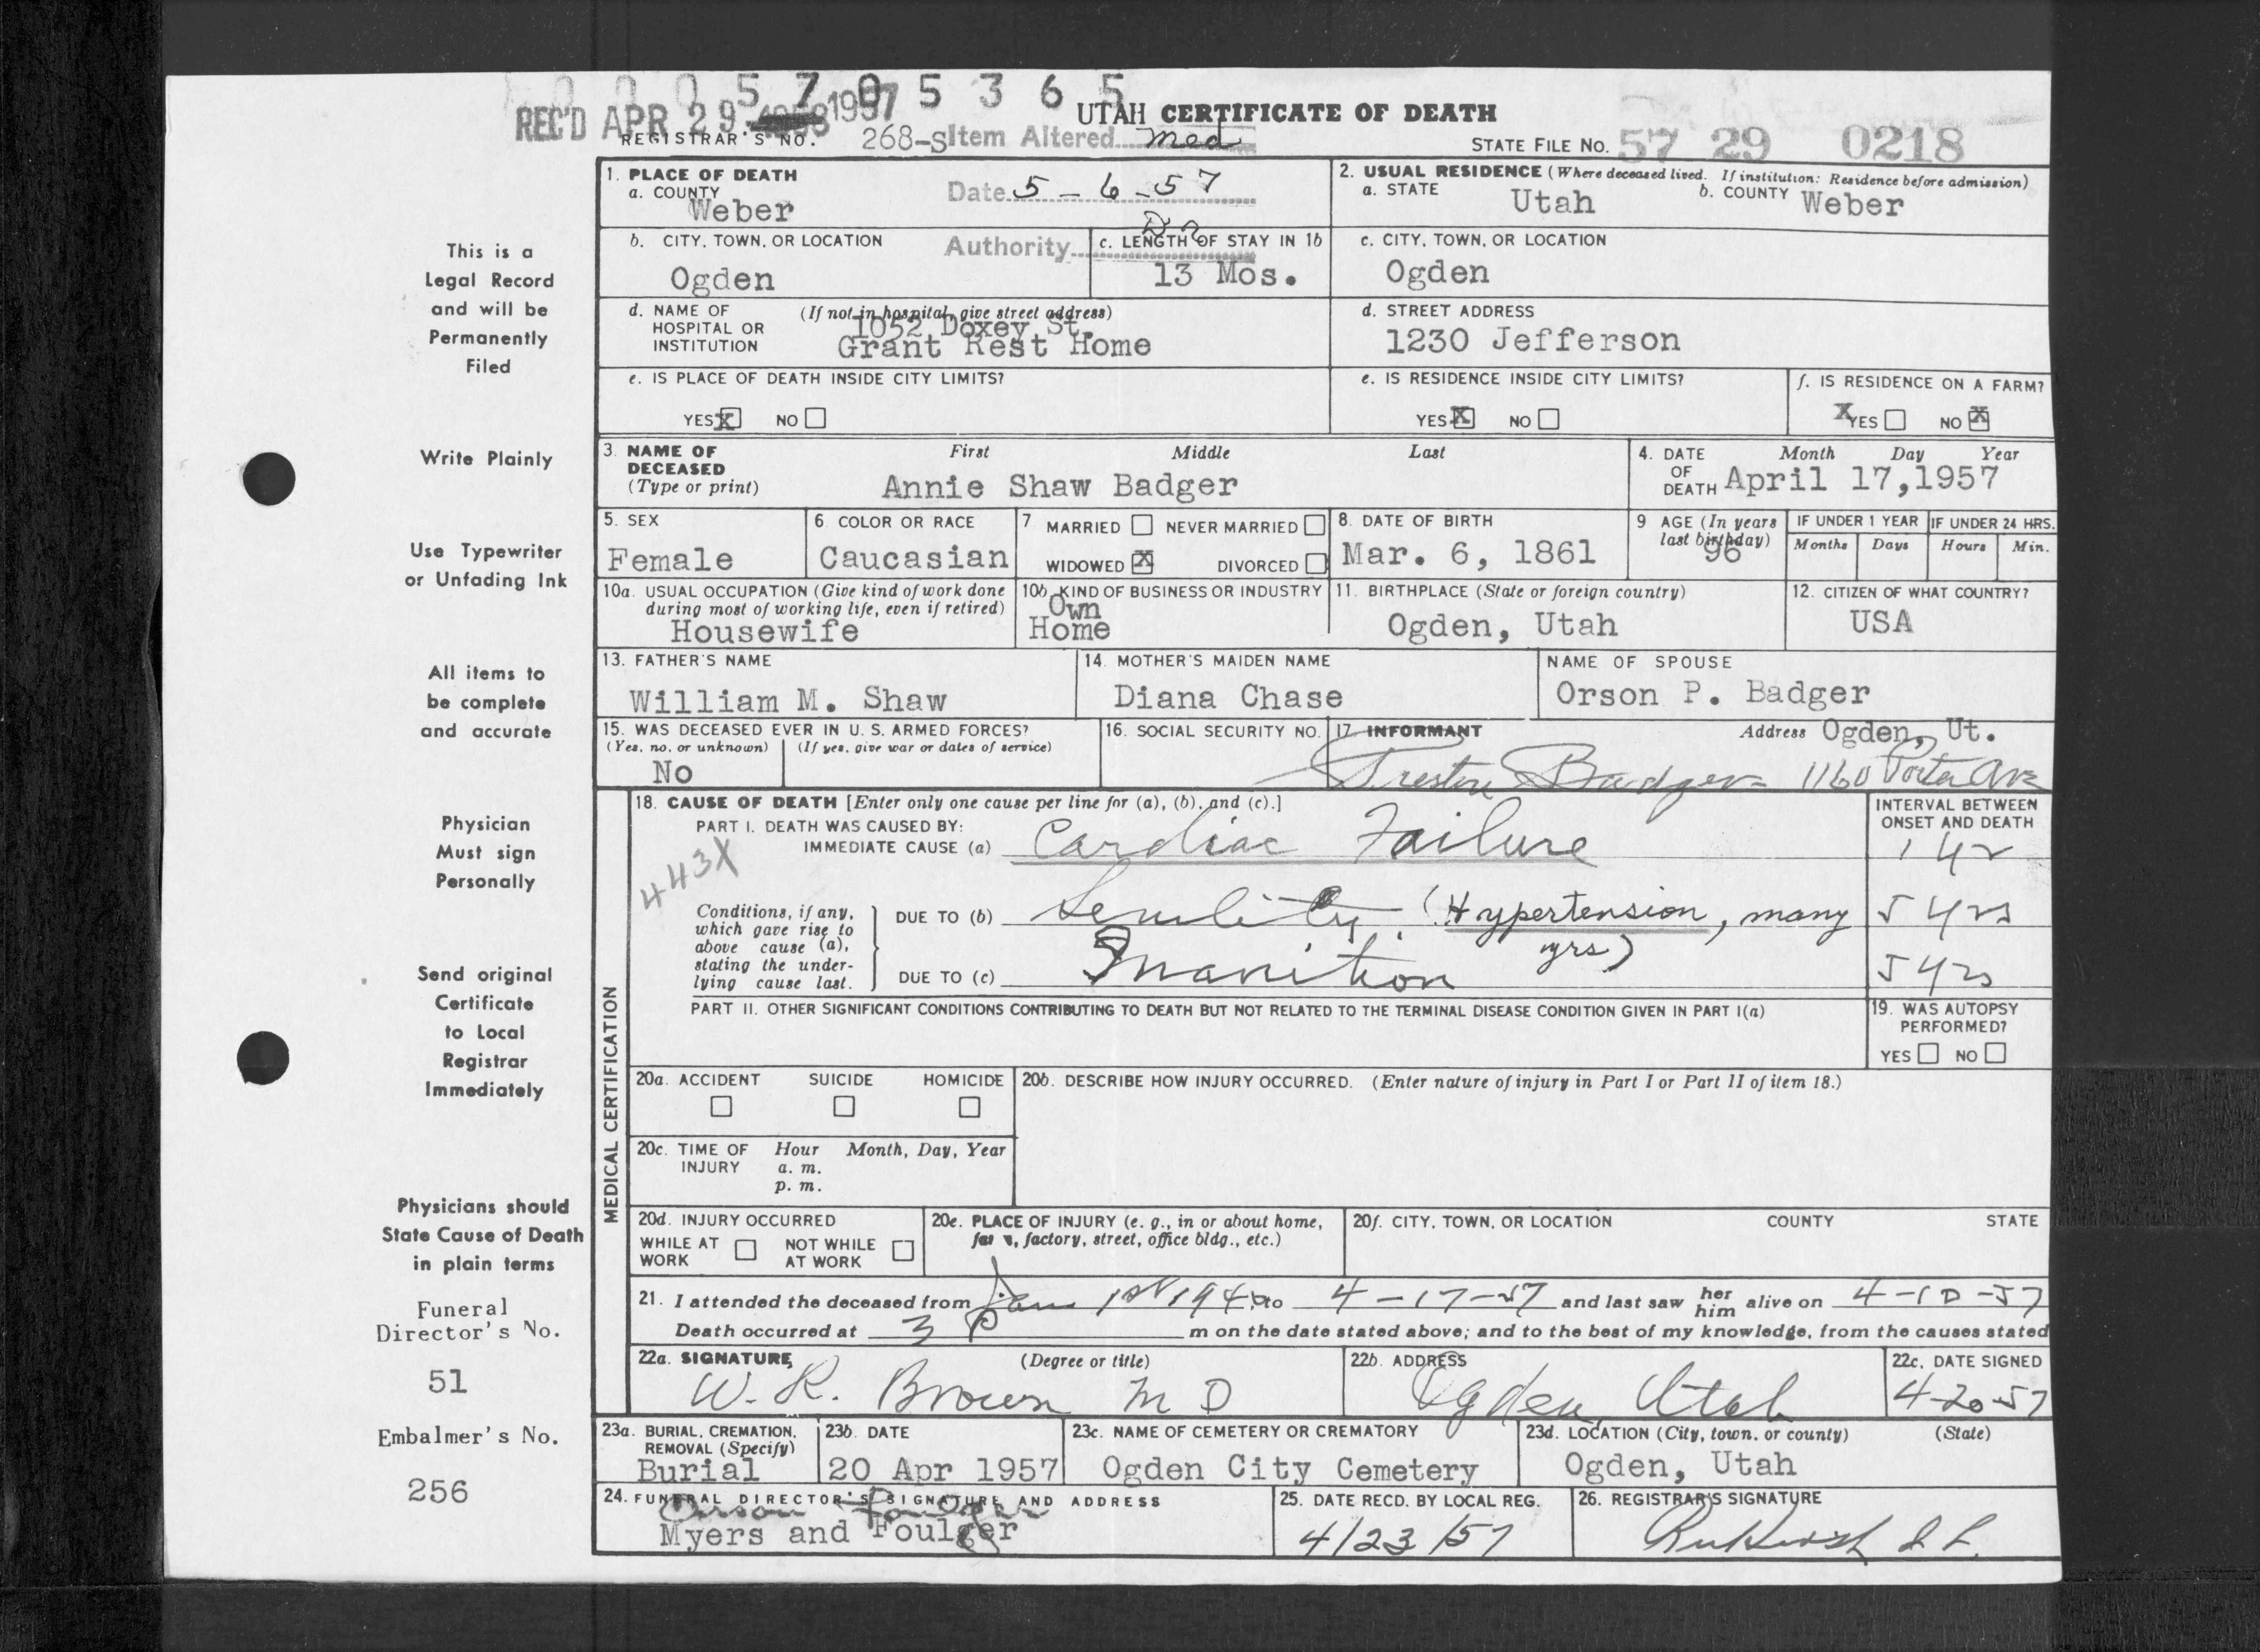 0 0 0 5 7 0 5 3 6 5
REC'D APR 29 1957
UTAH CERTIFICATE OF DEATH
REGISTRAR'S NO. 268-S Item Altered Med
STATE FILE NO. 57 29 0218
1. PLACE OF DEATH
a. COUNTY
Weber
Date 5-6-57
2. USUAL RESIDENCE (Where deceased lived. If institution: Residence before admission)
a. STATE Utah b. COUNTY Weber
b. CITY, TOWN, OR LOCATION
Ogden
Authority Dr
c. LENGTH OF STAY IN 1b
13 Mos.
c. CITY, TOWN, OR LOCATION
Ogden
d. NAME OF HOSPITAL OR INSTITUTION
(If not in hospital, give street address)
1052 Doxey St.
Grant Rest Home
d. STREET ADDRESS
1230 Jefferson
e. IS PLACE OF DEATH INSIDE CITY LIMITS?
YES X NO
e. IS RESIDENCE INSIDE CITY LIMITS?
YES X NO
f. IS RESIDENCE ON A FARM?
X YES NO X
3. NAME OF DECEASED
(Type or print)
First Middle Last
Annie Shaw Badger
4. DATE OF DEATH
Month Day Year
April 17,1957
5. SEX
Female
6. COLOR OR RACE
Caucasian
7 MARRIED NEVER MARRIED
WIDOWED X DIVORCED
8. DATE OF BIRTH
Mar. 6, 1861
9 AGE (In years last birthday)
96
IF UNDER 1 YEAR
Months Days
IF UNDER 24 HRS.
Hours Min.
10a. USUAL OCCUPATION (Give kind of work done during most of working life, even if retired)
Housewife
10b. KIND OF BUSINESS OR INDUSTRY
Own
Home
11. BIRTHPLACE (State or foreign country)
Ogden, Utah
12. CITIZEN OF WHAT COUNTRY?
USA
13. FATHER'S NAME
William M. Shaw
14. MOTHER'S MAIDEN NAME
Diana Chase
NAME OF SPOUSE
Orson P. Badger
15. WAS DECEASED EVER IN U. S. ARMED FORCES?
(Yes, no, or unknown) (If yes, give war or dates of service)
No
16. SOCIAL SECURITY NO.
17. INFORMANT
Address Ogden, Ut.
Badger 1160 Porter Ave
MEDICAL CERTIFICATION
18. CAUSE OF DEATH [Enter only one cause per line for (a), (b), and (c).]
INTERVAL BETWEEN ONSET AND DEATH
PART I. DEATH WAS CAUSED BY:
IMMEDIATE CAUSE (a) Cardiac Failure 1 yr
443X
Conditions, if any, which gave rise to above cause (a), stating the underlying cause last.
DUE TO (b) Senility (Hypertension, many yrs) 5 yrs
DUE TO (c) Inanition 5 yrs
PART II. OTHER SIGNIFICANT CONDITIONS CONTRIBUTING TO DEATH BUT NOT RELATED TO THE TERMINAL DISEASE CONDITION GIVEN IN PART I(a)
19. WAS AUTOPSY PERFORMED?
YES NO
20a. ACCIDENT SUICIDE HOMICIDE
20b. DESCRIBE HOW INJURY OCCURRED. (Enter nature of injury in Part I or Part II of item 18.)
20c. TIME OF INJURY
Hour Month, Day, Year
a. m.
p. m.
20d. INJURY OCCURRED
WHILE AT WORK NOT WHILE AT WORK
20e. PLACE OF INJURY (e. g., in or about home, farm, factory, street, office bldg., etc.)
20f. CITY, TOWN, OR LOCATION COUNTY STATE
21. I attended the deceased from Jan 1st to 4-17-57 and last saw her him alive on 4-10-57
Death occurred at 3 P m on the date stated above; and to the best of my knowledge, from the causes stated
22a. SIGNATURE (Degree or title)
W. R. Brown M D
22b. ADDRESS
Ogden Utah
22c. DATE SIGNED
4-20-57
23a. BURIAL, CREMATION, REMOVAL (Specify)
Burial
23b. DATE
20 Apr 1957
23c. NAME OF CEMETERY OR CREMATORY
Ogden City Cemetery
23d. LOCATION (City, town, or county) (State)
Ogden, Utah
24. FUNERAL DIRECTOR'S SIGNATURE AND ADDRESS
Orson Foulger
Myers and Foulger
25. DATE RECD. BY LOCAL REG.
4/23/57
26. REGISTRAR'S SIGNATURE
This is a
Legal Record
and will be
Permanently
Filed
Write Plainly
Use Typewriter
or Unfading Ink
All items to
be complete
and accurate
Physician
Must sign
Personally
Send original
Certificate
to Local
Registrar
Immediately
Physicians should
State Cause of Death
in plain terms
Funeral
Director's No.
51
Embalmer's No.
256